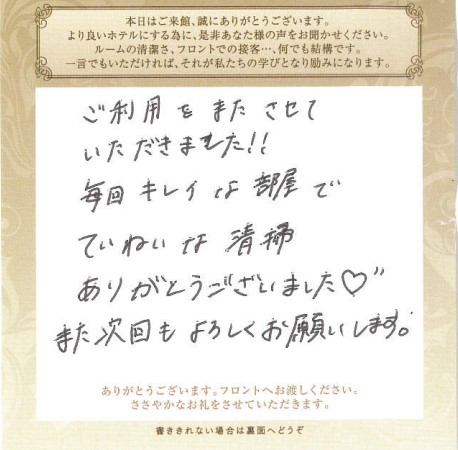 本日はご来館、誠にありがとうございます。
より良いホテルにする為に、是非あなた様の声をお聞かせください。
ルームの清潔さ、フロントでの接客…、何でも結構です。
一言でもいただければ、それが私たちの学びとなり励みになります。
ご利用をまたさせて
いただきました!!
毎回キレイな部屋で
ていねいな清掃
ありがとうございました♡"
また次回もよろしくお願いします。
ありがとうございます。フロントへお渡しください。
ささやかなお礼をさせていただきます。
書ききれない場合は裏面へどうぞ